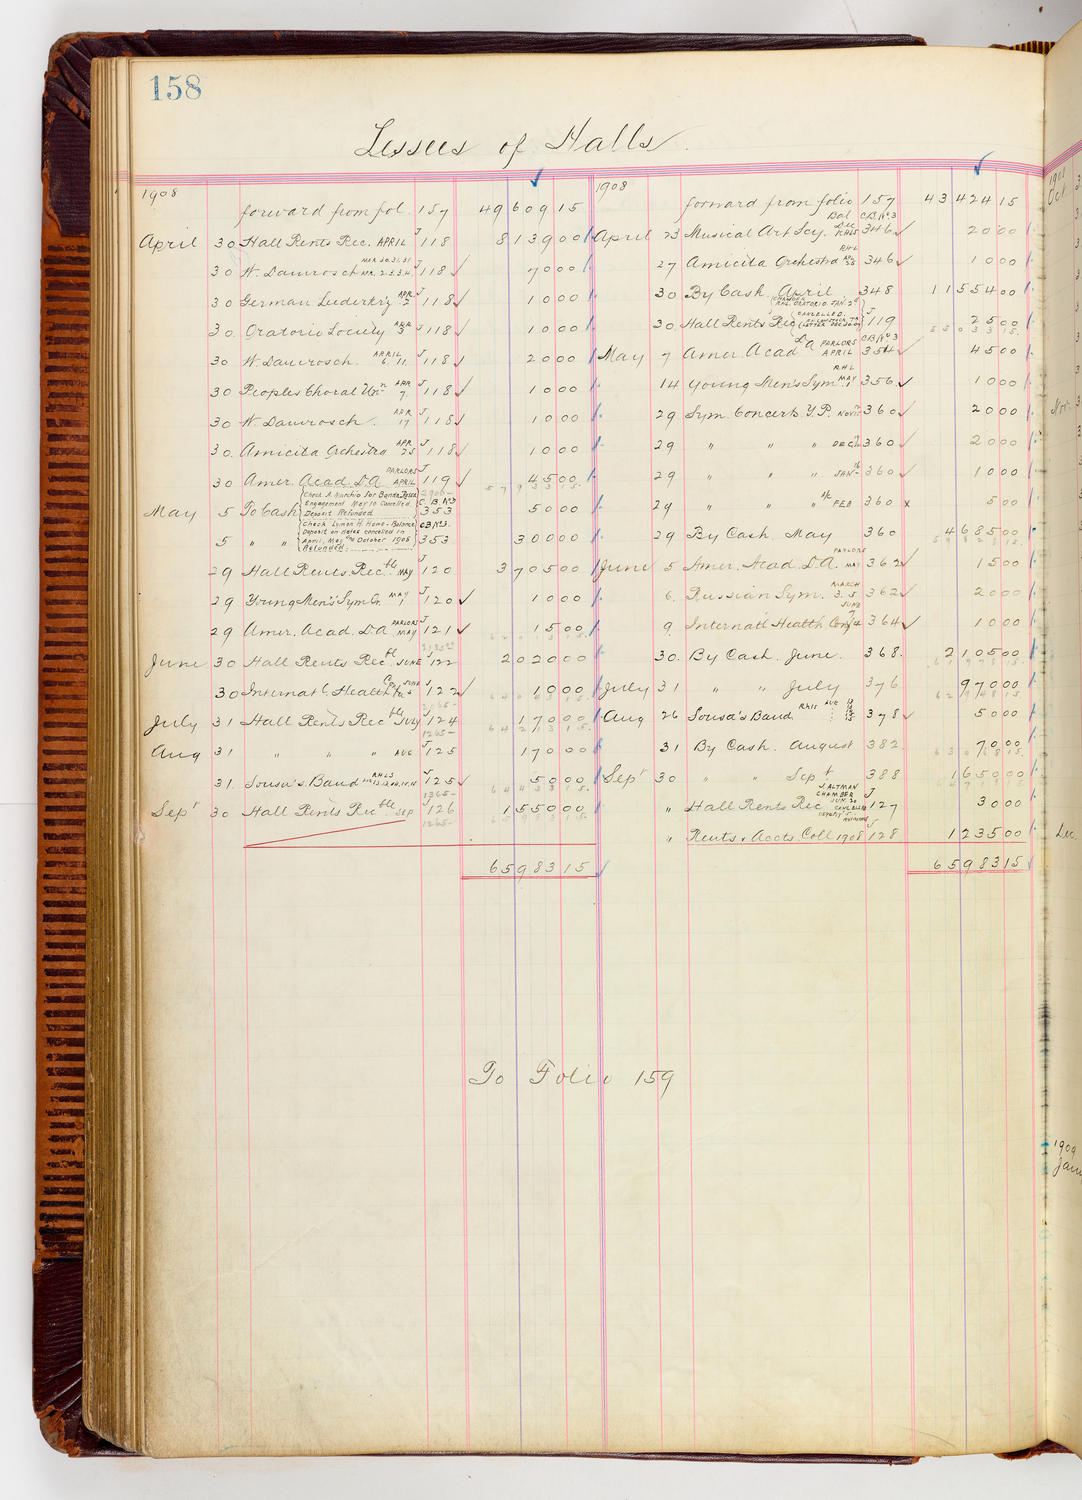 158
Lessees of Halls.
1908
forward from fol. 157 49609 15
April 30 Hall Rents Rec. APRIL J 118 8139 00
30 W. Damrosch MAR 30.31.31 J 118 70 00
30 German Liederkrz APR J 118 10 00
30. Oratorio Society APR J 118 10 00
30 W. Damrosch. APRIL 6. 11. J 118 20 00
30 Peoples Choral Un APR 7. J 118 10 00
30 W. Damrosch. APR 17 J 118 10 00
30. Amicitia Orchestra APR 25 J 118 10 00
30 Amer. Acad. D.A. PARLORS APRIL J 119 45 00
57933 15
May 5 To Cash Check A. Marchio for Banda Rossa Engagement May 10 Cancelled Deposit Refunded C.B. No 3 353 50 00
5 " " Check Lyman H. Howe - Balance Deposit on dates cancelled in April, May and October 1908 Refunded. CB No 3. 353 300 00
29 Hall Rents Recble MAY J 120 3705 00
29 Young Men's Sym. Or. MAY 1 J 120 10 00
29 Amer. Acad. D.A. PARLORS MAY J 121 15 00
June 30 Hall Rents Recble JUNE J 122 2020 00
30 Internatl Health JUNE J 122 10 00
July 31 Hall Rents Recble JULY J 124 170 00
64213 15
1265-
Aug 31 " " " AUG J 125 170 00
31. Sousa's Band RHLS J 125 50 00
64433 15.
1365-
Sept 30 Hall Rents Recble SEP J 126 1550 00
1265-
65983 15
1908
forward from folio 157 43424 15
April 23 Musical Art Socy. Bal Dec RHLS C.B. No 3 346 20 00
27 Amicitia Orchestra RHL APL 25 346 10 00
30 By Cash. April 348 11554 00
30. Hall Rents Rec CHAMBER RHL. ORATORIO. JAN. 28 CANCELLED. J 119 25 00
55033 15
May 7 Amer. Acad D A PARLORS APRIL CB No 3 354 45 00
14 Young Men's Sym. RHL MAY 1 356. 10 00
29 Sym. Concerts Y.P. Nov 360 20 00
29 " " " DEC 360 20 00
29 " " " JAN 360 10 00
29 " " " a/c FEB 360 x 5 00
29 By Cash May 360 4685 00
June 5 Amer. Acad. D.A. PARLORS MAY 362 15 00
6. Russian Sym. MARCH 3. 5 362 20 00
9. Internatl Health Con JUNE 364 10 00
30. By Cash. June. 368. 2105 00
61978 15
July 31 " " July 376 970 00
62948 15
Aug 26 Sousa's Band RHLS AUG 378 50 00
31 By Cash. August 382. 70 00
63068 15
Sept 30 " " Sept 388 1650 00
" Hall Rents Rec J. ALTMAN CHAMBER JUN. 20 CANCELLED J 127 30 00
" Rents & Accts. Coll 1908 J 128 1235 00
65983 15
To Folio 159
Oct
Nov.
Dec.
1909